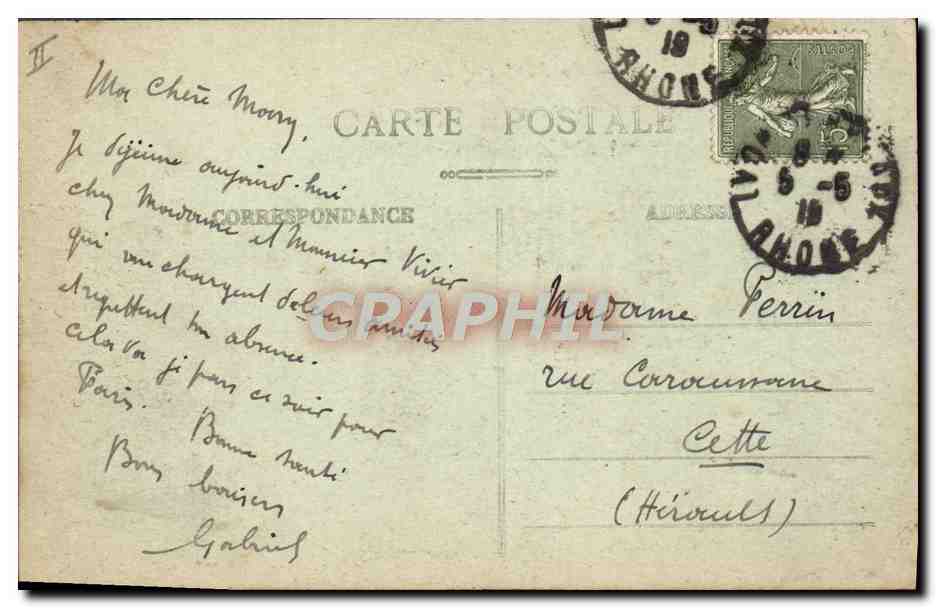 II
Ma Chère Mary,
Je déjeune aujourd'hui
chez Madame et Monsieur Vivier
qui me chargent de leurs amitiés
et regrettent ton absence.
Cela va je pars ce soir pour
Paris. Bonne santé
Bons baisers
Gabriel
CARTE POSTALE
CORRESPONDANCE
ADRESSE
CRAPHIL
RHONE
19
POSTES
REPUBLIQUE FRANÇAISE
15
5 -5
19
RHONE
Madame Perrin
rue Caraussane
Cette
(Hérault)